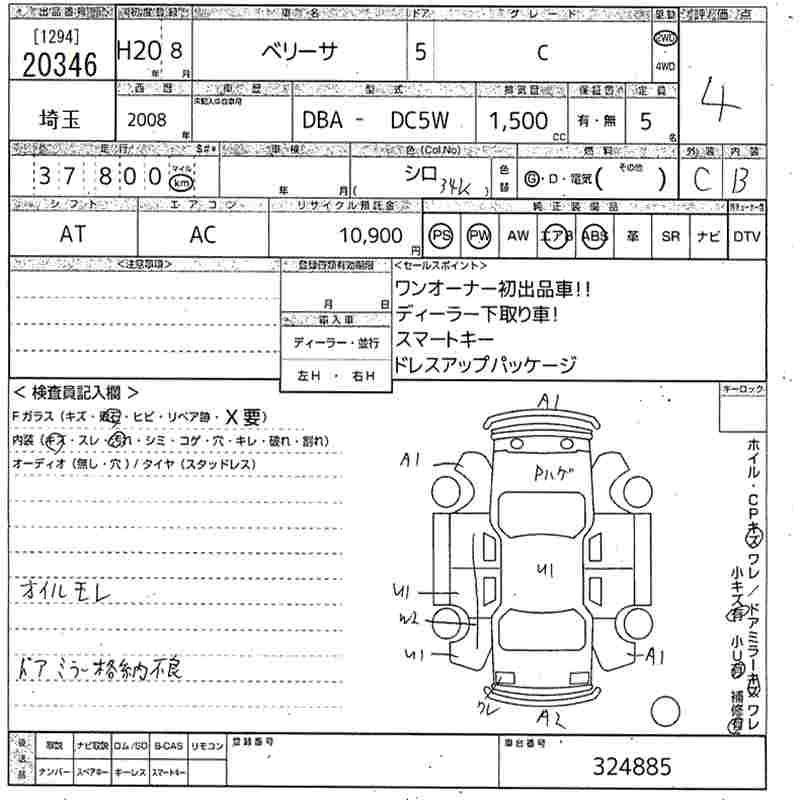 出品番号 初度登録 車名 ドア グレード 駆動 評価点
[1294]
20346 H20 8 ベリーサ 5 C 2WD 4WD 4
年 月
西暦 車歴 型式 排気量 保証書 定員
埼玉 2008 年 DBA - DC5W 1,500 cc 有・無 5 名
走行 車検 色(Col.No) 燃料 外装 内装
37800 マイル km 年 月 シロ 34K 色替 G・D・電気( その他 ) C B
シフト エアコン リサイクル預託金 純正装備品
AT AC 10,900 円 PS PW AW エアB ABS 革 SR ナビ DTV
<注意事項> 登録書類有効期限 <セールスポイント>
月 日
輸入車
ディーラー・並行
左H ・ 右H
ワンオーナー初出品車!!
ディーラー下取り車!
スマートキー
ドレスアップパッケージ
< 検査員記入欄 >
キーロック
Fガラス(キズ・飛石・ヒビ・リペア跡・X要)
内装(キズ・スレ・汚れ・シミ・コゲ・穴・キレ・破れ・割れ)
オーディオ(無し・穴)/タイヤ(スタッドレス)
オイルモレ
ドアミラー格納不良
A1
A1
Pハゲ
U1
U1
W2
U1
A1
ワレ
A2
ホイル・CPキズ ワレ/ドアミラーキズ ワレ
小キズ有 小U有 補修有
後送品 取説 ナビ取説 ロム/SD B-CAS リモコン 登録番号 車台番号
ナンバー スペアキー キーレス スマートキー
324885